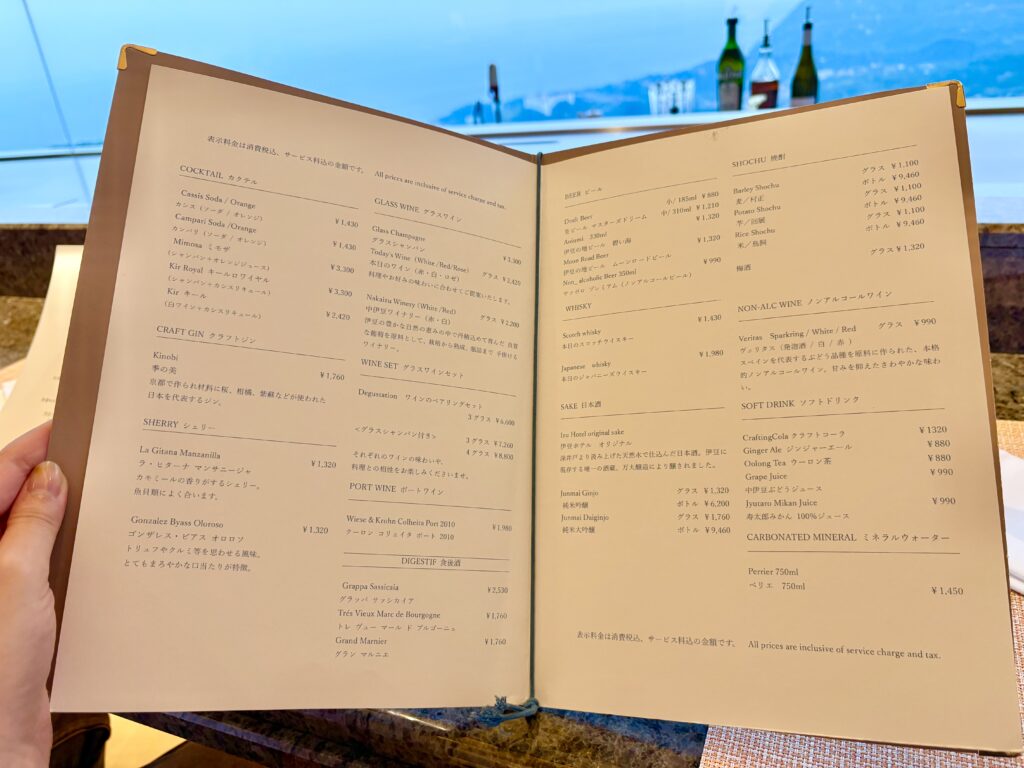 表示料金は消費税込、サービス料込の金額です。 All prices are inclusive of service charge and tax.
COCKTAIL カクテル
Cassis Soda / Orange
カシス(ソーダ / オレンジ) ¥1,430
Campari Soda /Orange
カンパリ(ソーダ / オレンジ) ¥1,430
Mimosa ミモザ
(シャンパン+オレンジジュース) ¥3,300
Kir Royal キールロワイヤル
(シャンパン+カシスリキュール) ¥3,300
Kir キール
(白ワイン+カシスリキュール) ¥2,420
CRAFT GIN クラフトジン
Kinobi
季の美 ¥1,760
京都で作られ材料に桜、柑橘、紫蘇などが使われた
日本を代表するジン。
SHERRY シェリー
La Gitana Manzanilla
ラ・ヒターナ マンサニージャ ¥1,320
カモミールの香りがするシェリー。
魚貝類によく合います。
Gonzalez Byass Oloroso
ゴンザレス・ビアス オロロソ ¥1,320
トリュフやクルミ等を思わせる風味。
とてもまろやかな口当たりが特徴。
GLASS WINE グラスワイン
Glass Champagne
グラスシャンパン ¥3,300
Today's Wine (White/Red/Rose)
本日のワイン(赤・白・ロゼ) グラス ¥2,420
料理やお好みの味わいに合わせてご提案いたします。
Nakaizu Winery (White/Red)
中伊豆ワイナリー(赤・白) グラス ¥2,200
伊豆の豊かな自然の恵みの中で丹精込めて育んだ 良質
な葡萄を原料として、栽培から熟成、瓶詰まで 手掛ける
ワイナリー。
WINE SET グラスワインセット
Degustation ワインのペアリングセット
3グラス ¥6,600
<グラスシャンパン付き> 3グラス ¥7,260
4グラス ¥8,800
それぞれのワインの味わいや、
料理との相性をお楽しみくださいませ。
PORT WINE ポートワイン
Wiese & Krohn Colheita Port 2010 ¥1,980
クーロン コリェイタ ポート 2010
DIGESTIF 食後酒
Grappa Sassicaia ¥2,530
グラッパ サッシカイア
Trés Vieux Marc de Bourgogne ¥1,760
トレ ヴュー マール ド ブルゴーニュ
Grand Marnier ¥1,760
グラン マルニエ
BEER ビール
Draft Beer 小/ 185ml ¥880
生ビール マスターズドリーム 中/ 310ml ¥1,210
330ml ¥1,320
伊豆の地ビール 碧い海
Moon Road Beer ¥1,320
伊豆の地ビール ムーンロードビール
Non_ alcoholic Beer 350ml ¥990
サッポロ プレミアム (ノンアルコールビール)
WHISKY
Scotch whisky ¥1,430
本日のスコッチウイスキー
Japanese whisky ¥1,980
本日のジャパニーズウイスキー
SAKE 日本酒
Izu Hotel original sake
伊豆ホテル オリジナル
深井戸より汲み上げた天然水で仕込んだ日本酒。伊豆に
現存する唯一の酒蔵、万大醸造により醸されました。
Junmai Ginjo グラス ¥1,320
純米吟醸 ボトル ¥6,200
Junmai Daiginjo グラス ¥1,760
純米大吟醸 ボトル ¥9,460
SHOCHU 焼酎
Barley Shochu グラス ¥1,100
麦/村正 ボトル ¥9,460
Potato Shochu グラス ¥1,100
芋/ ボトル ¥9,460
Rice Shochu グラス ¥1,100
米/鳥飼 ボトル ¥9,460
梅酒 グラス ¥1,320
NON-ALC WINE ノンアルコールワイン
Veritas Sparkring / White / Red グラス ¥990
ヴェリタス(発泡酒 / 白 / 赤 )
スペインを代表するぶどう品種を原料に作られた、本格
的ノンアルコールワイン。甘みを抑えたさわやかな味わ
い。
SOFT DRINK ソフトドリンク
CraftingCola クラフトコーラ ¥1320
Ginger Ale ジンジャーエール ¥880
Oolong Tea ウーロン茶 ¥880
Grape Juice ¥990
中伊豆ぶどうジュース
Jyutaro Mikan Juice ¥990
寿太郎みかん 100%ジュース
CARBONATED MINERAL ミネラルウォーター
Perrier 750ml
ペリエ 750ml ¥1,450
表示料金は消費税込、サービス料込の金額です。 All prices are inclusive of service charge and tax.